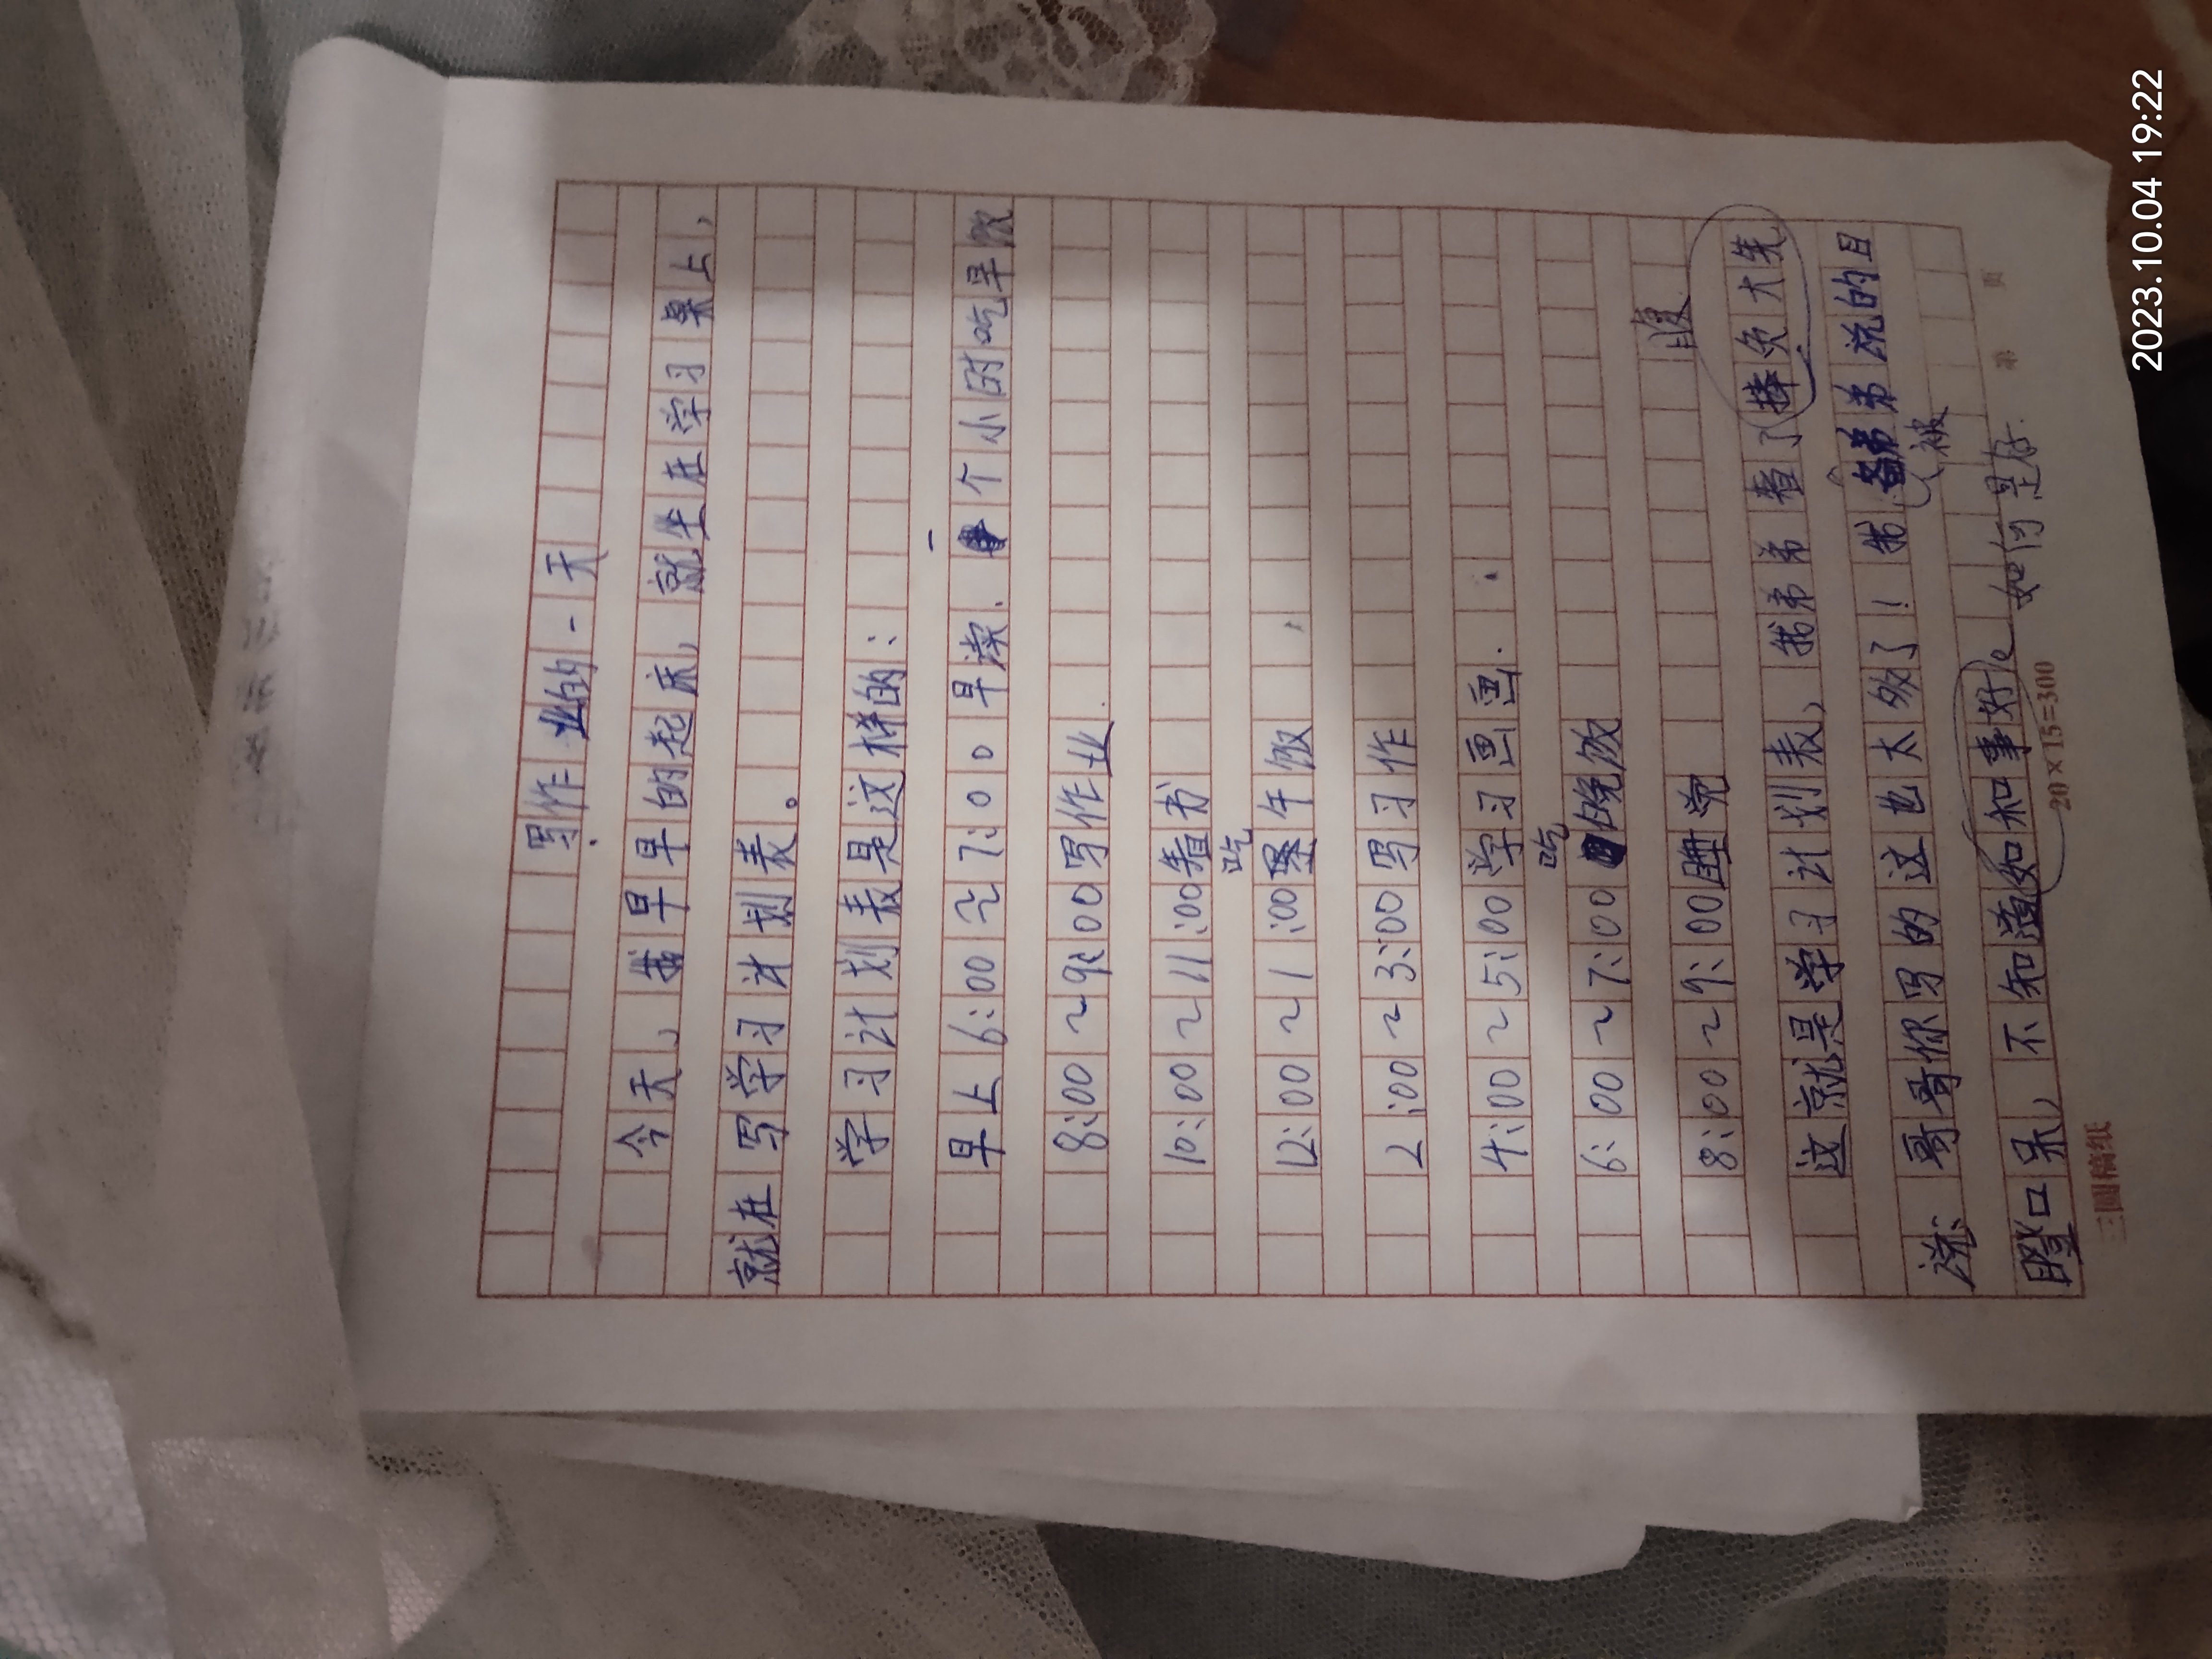 写作业的一天
今天，我早早的起床，就坐在学习桌上，
就在写学习计划表。
学习计划表是这样的：
一
早上6:00～7:00早读.个小时吃早饭
8:00～9:00写作业.
10:00～11:00看书
吃
12:00～1:00午饭
2:00～3:00写习作
4:00～5:00学习画画.
吃
6:00～7:00晚饭
8:00～9:00睡觉
腹
这就是学习计划表，我弟弟看了捧灸大笑
说：哥哥你写的这也太多了！我弟弟说的目
(被
瞪口呆，不知道如和事好
如何是好.
20×15=300
三圆稿纸
第 页
2023.10.04 19:22